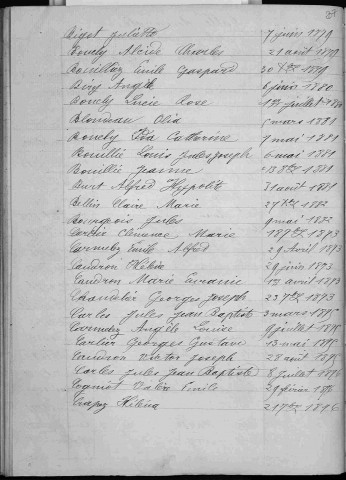 Bigot Juliette 7 juin 1879
Bouly Alcide Charles 21 août 1879
Bouillez Emile Gaspard 30 Xbre 1879
Biry Angèle 6 juin 1880
Bouly Lucie Rose juillet
Blondeau Olia 6 mars 1881
Bouchy Ida Catherine 7 mai 1881
Bouillié Louis Jules Joseph 6 mai 1881
Bouillié Jeanne 1881
Burt Alfred Hypolite 31 août 1881
Bellin Claire Marie 27 Xbre 1882
Bourgeois Jules 9 mai 1882
Carlier Clémence Marie 1873
Cormeby Emile Alfred 29 Avril 1873
Caudron Héléna 29 juin 1873
Caudron Marie Euranie 12 avril 1873
Chandelier Georges Joseph 23 1873
Carles Jules Jean Baptiste 3 mars 1875
Cormeby Angèle Louise 9 juillet 1875
Carlier Georges Gustave 13 mai 1875
Caudron Victor Joseph 28 août 1875
Carles Jules Jean Baptiste 8 juillet 1876
Cogniot Valéry Emile 29 février 1876
Crapez Héléna 21 7bre 1876